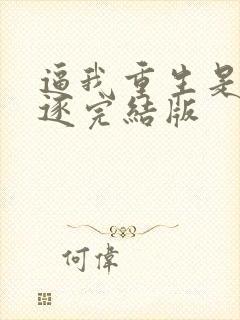 逼我重生是
逐完結版
何偉